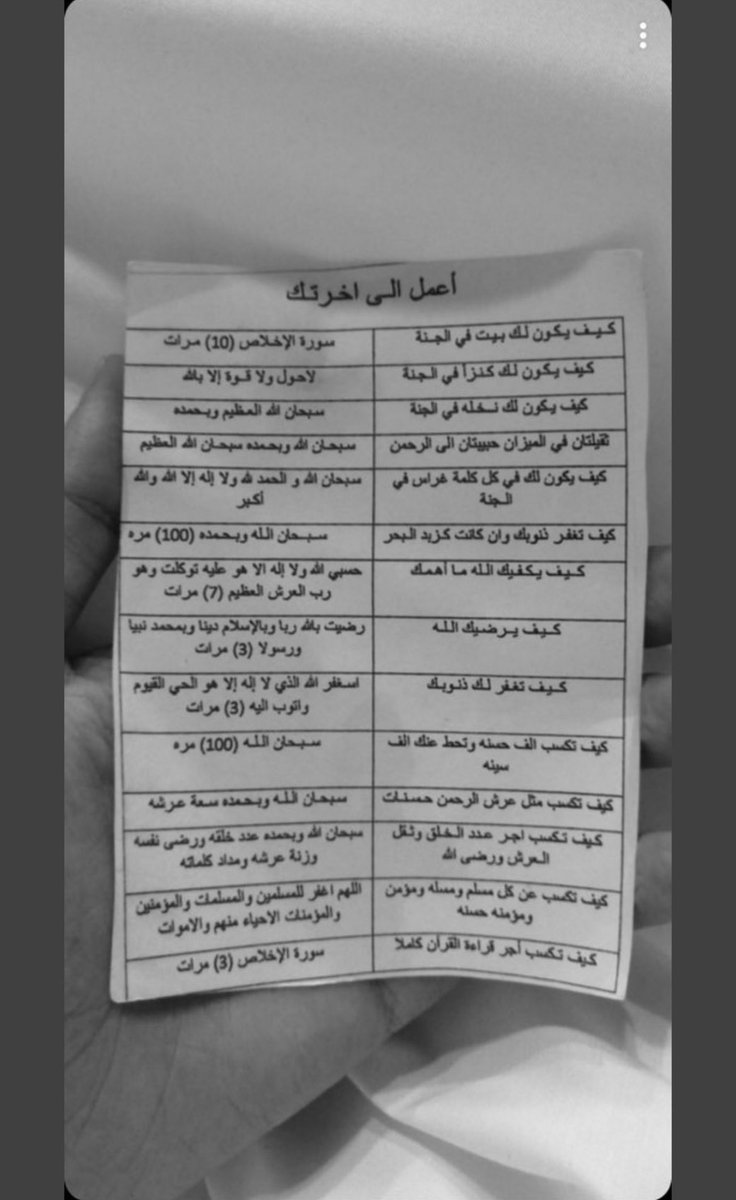 أعمل الى اخرتك
كيف يكون لك بيت في الجنة
سورة الإخلاص (10) مرات
كيف يكون لك كنزاً في الجنة
لاحول ولا قوة إلا بالله
كيف يكون لك نخله في الجنة
سبحان الله العظيم وبحمده
ثقيلتان في الميزان حبيبتان الى الرحمن
سبحان الله وبحمده سبحان الله العظيم
كيف يكون لك في كل كلمة غراس في
الجنة
سبحان الله و الحمد لله ولا إله إلا الله والله
أكبر
كيف تغفر ذنوبك وان كانت كزبد البحر
سبحان الله وبحمده (100) مره
كيف يكفيك الله ما أهمك
حسبي الله ولا إله الا هو عليه توكلت وهو
رب العرش العظيم (7) مرات
كيف يرضيك الله
رضيت بالله ربا وبالإسلام دينا وبمحمد نبيا
ورسولا (3) مرات
كيف تغفر لك ذنوبك
اسغفر الله الذي لا إله إلا هو الحي القيوم
واتوب اليه (3) مرات
كيف تكسب الف حسنه وتحط عنك الف
سيئه
سبحان الله (100) مره
كيف تكسب مثل عرش الرحمن حسنات
سبحان الله وبحمده سعة عرشه
كيف تكسب اجر عدد الخلق وثقل
العرش ورضى الله
سبحان الله وبحمده عدد خلقه ورضى نفسه
وزنة عرشه ومداد كلماته
كيف تكسب عن كل مسلم ومسله ومؤمن
ومؤمنه حسنه
اللهم اغفر للمسلمين والمسلمات والمؤمنين
والمؤمنات الاحياء منهم والاموات
كيف تكسب أجر قراءة القرآن كاملا
سورة الإخلاص (3) مرات